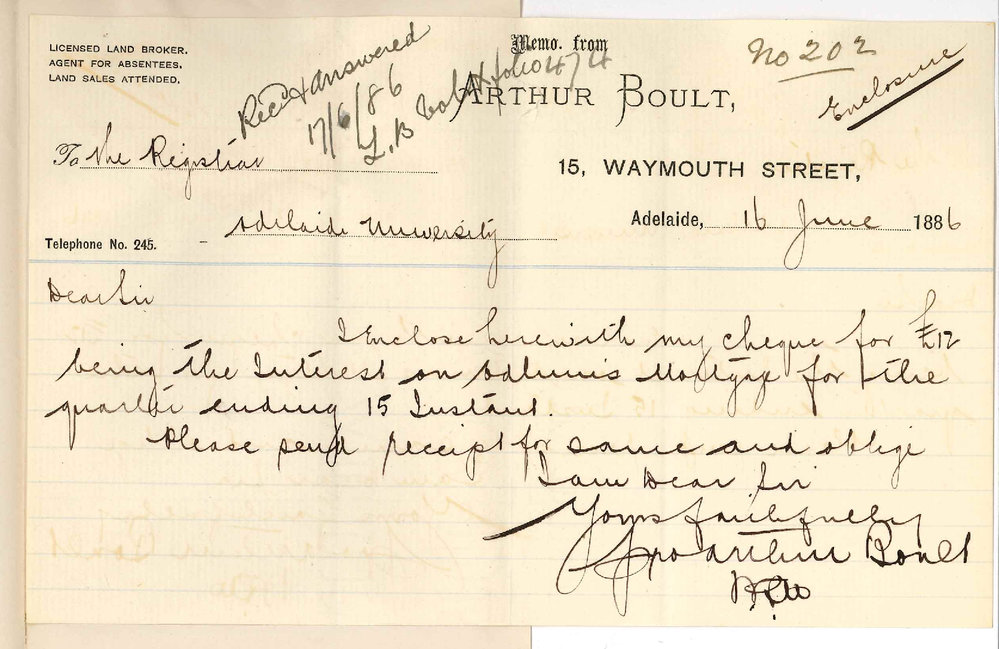 LICENSED LAND BROKER.
AGENT FOR ABSENTEES.
LAND SALES ATTENDED.
Memo. from
No 202
Enclosure
Recd & answered
17/6/86
L.B Vol folio 474
ARTHUR BOULT,
To the Registrar
15, WAYMOUTH STREET,
Adelaide University
Adelaide, 16 June 1886
Telephone No. 245.
Dear Sir
I Enclose herewith my cheque for £12
being the Interest on Mortgage for the
quarter ending 15 Instant.
Please send receipt for same and oblige
I am Dear Sir
Yours faithfully
pro Arthur Boult